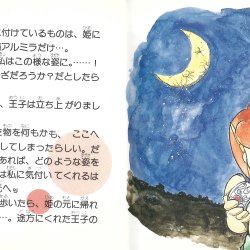 に付けているものは、姫に
アルミラだけ…。
私はこの様な姿に。……！
ざだろうか？だとしたら
、王子は立ち上がりまし
物を何もかも、ここへ
てしまったらしい。だ
あれば、どのような姿を
は私に気付いてくれるは
元へ。
歩いたら、姫の元に帰れ
…。途方にくれた王子の